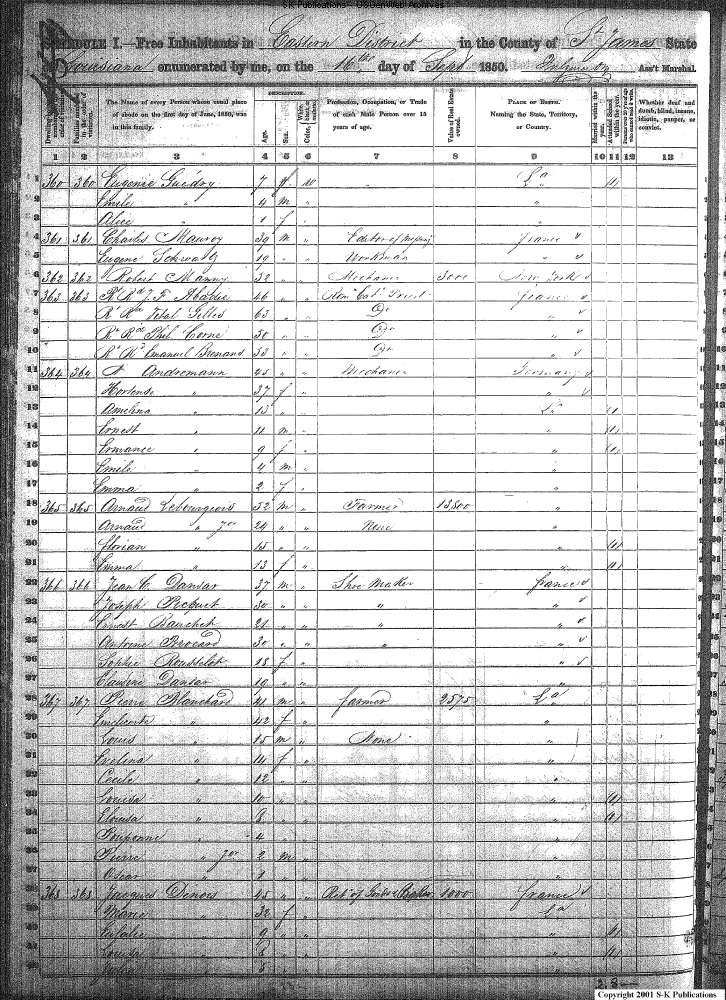 S-K Publications - USGenWeb Archives
SCHEDULE I.—Free Inhabitants in Eastern District in the County of St James State
Louisiana enumerated by me, on the 16th day of Sept 1850. Ass't Marshal.
DESCRIPTION.
The Name of every Person whose usual place of abode on the first day of June, 1850, was in this family.
Age.
Sex.
Profession, Occupation, or Trade of each Male Person over 15 years of age.
Value of Real Estate owned.
PLACE OF BIRTH. Naming the State, Territory, or Country.
Married within the year.
Attended School within the year.
Whether deaf and dumb, blind, insane, idiotic, pauper, or convict.
1 2 3 4 5 6 7 8 9 10 11 12 13
1 360 360 Eugenie Guedry 7 f w La (1)
2 Emile " 4 m " "
3 Alice " 1 f " "
4 361 361 Charles Mauroy 39 m " Editor of france
5 Eugene Schwatz 19 " " Workman "
6 362 362 Robert Manny 32 " " Mechanic 3000 New York
7 363 363 Rt Rd J. F. Abadie 46 " " Rom Cat Priest france
8 Rt Rd Vital Gelles 63 " " Do "
9 Rt Rd Phil. Corne 50 " " Do "
10 Rt Rd Emanuel 33 " " Do "
11 364 364 Andremann 45 " " Mechanic Germany
12 Hortense " 37 f " "
13 Amelina " 13 " " La (1)
14 Ernest " 11 m " " (1)
15 Ermance " 9 f " " (1)
16 Emile " 4 m " "
17 Emma " 2 f " "
18 365 365 Arnaud Lebourgeois 52 m " Farmer 13,800 "
19 Arnaud " Jor 24 " " None "
20 florian " 15 " " " (1)
21 Emma " 13 f " " (1)
22 366 366 Jean C. Dansar 37 m " Shoe Maker france
23 Joseph Pecquet 30 " " " "
24 Ernest Bauchet 21 " " " "
25 Antoine Brocard 30 " " " "
26 Sophie Rousselot 18 f " "
27 Claudine Dansar 19 " " "
28 367 367 Pierre Blanchard 41 m " farmer 2575 La
29 " 42 f " "
30 Louis " 15 m " None "
31 Evelina " 14 f " "
32 Cecile " 12 " " "
33 Louisa " 10 " " " (1)
Elouisa " 8 " " " (1)
" 4 " " "
Pierre " Jor 2 m " "
Oscar " 1 " " "
368 368 Jacques 45 " " 1000 france
Marie " 32 f " La
Eulalie " 9 " " " (1)
Louisa " 8 " " " (1)
Copyright 2001 S-K Publications